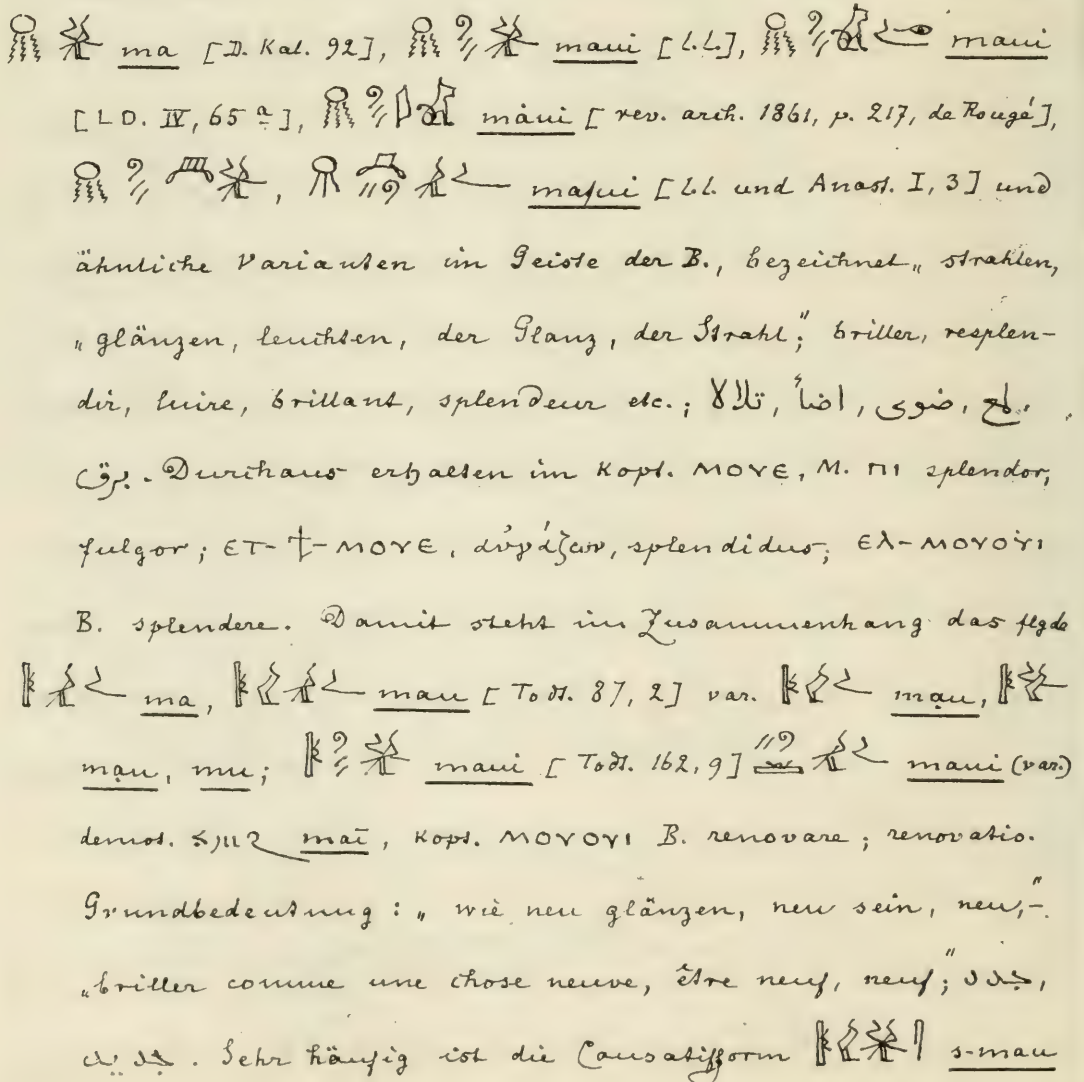 ma [D. Kal. 92], maui [l.l.], maui
[LD. IV, 65 a], màui [rev. arch. 1861, p. 217, de Rougé],
mafui [l.l. und Anast. I, 3] und
ähnliche Varianten im Geiste der B., bezeichnet „strahlen,
„glänzen, leuchten, der Glanz, der Strahl;" briller, resplen-
dir, luire, brillant, splendeur etc.; تلالا, اضأ, ضوى, لمع,
برق. Durchaus erhalten im Kopt. ⲙⲟⲩⲉ, M. ⲡⲓ splendor,
fulgor; ⲉⲧ-ϯ-ⲙⲟⲩⲉ, splendidus; ⲉⲗ-ⲙⲟⲩⲟⲩⲓ
B. splendere. Damit steht im Zusammenhang das flgde
ma, mau [Todt. 87, 2] var. mạu,
mạu, mu; maui [Todt. 162, 9] maui (var.)
demot. maī, Kopt. ⲙⲟⲩⲟⲩⲓ B. renovare; renovatio.
Grundbedeutung: „wie neu glänzen, neu sein, neu,"-
„briller comme une chose neuve, être neuf, neuf;" جدد,
جديد. Sehr häufig ist die Causatifform s-mau